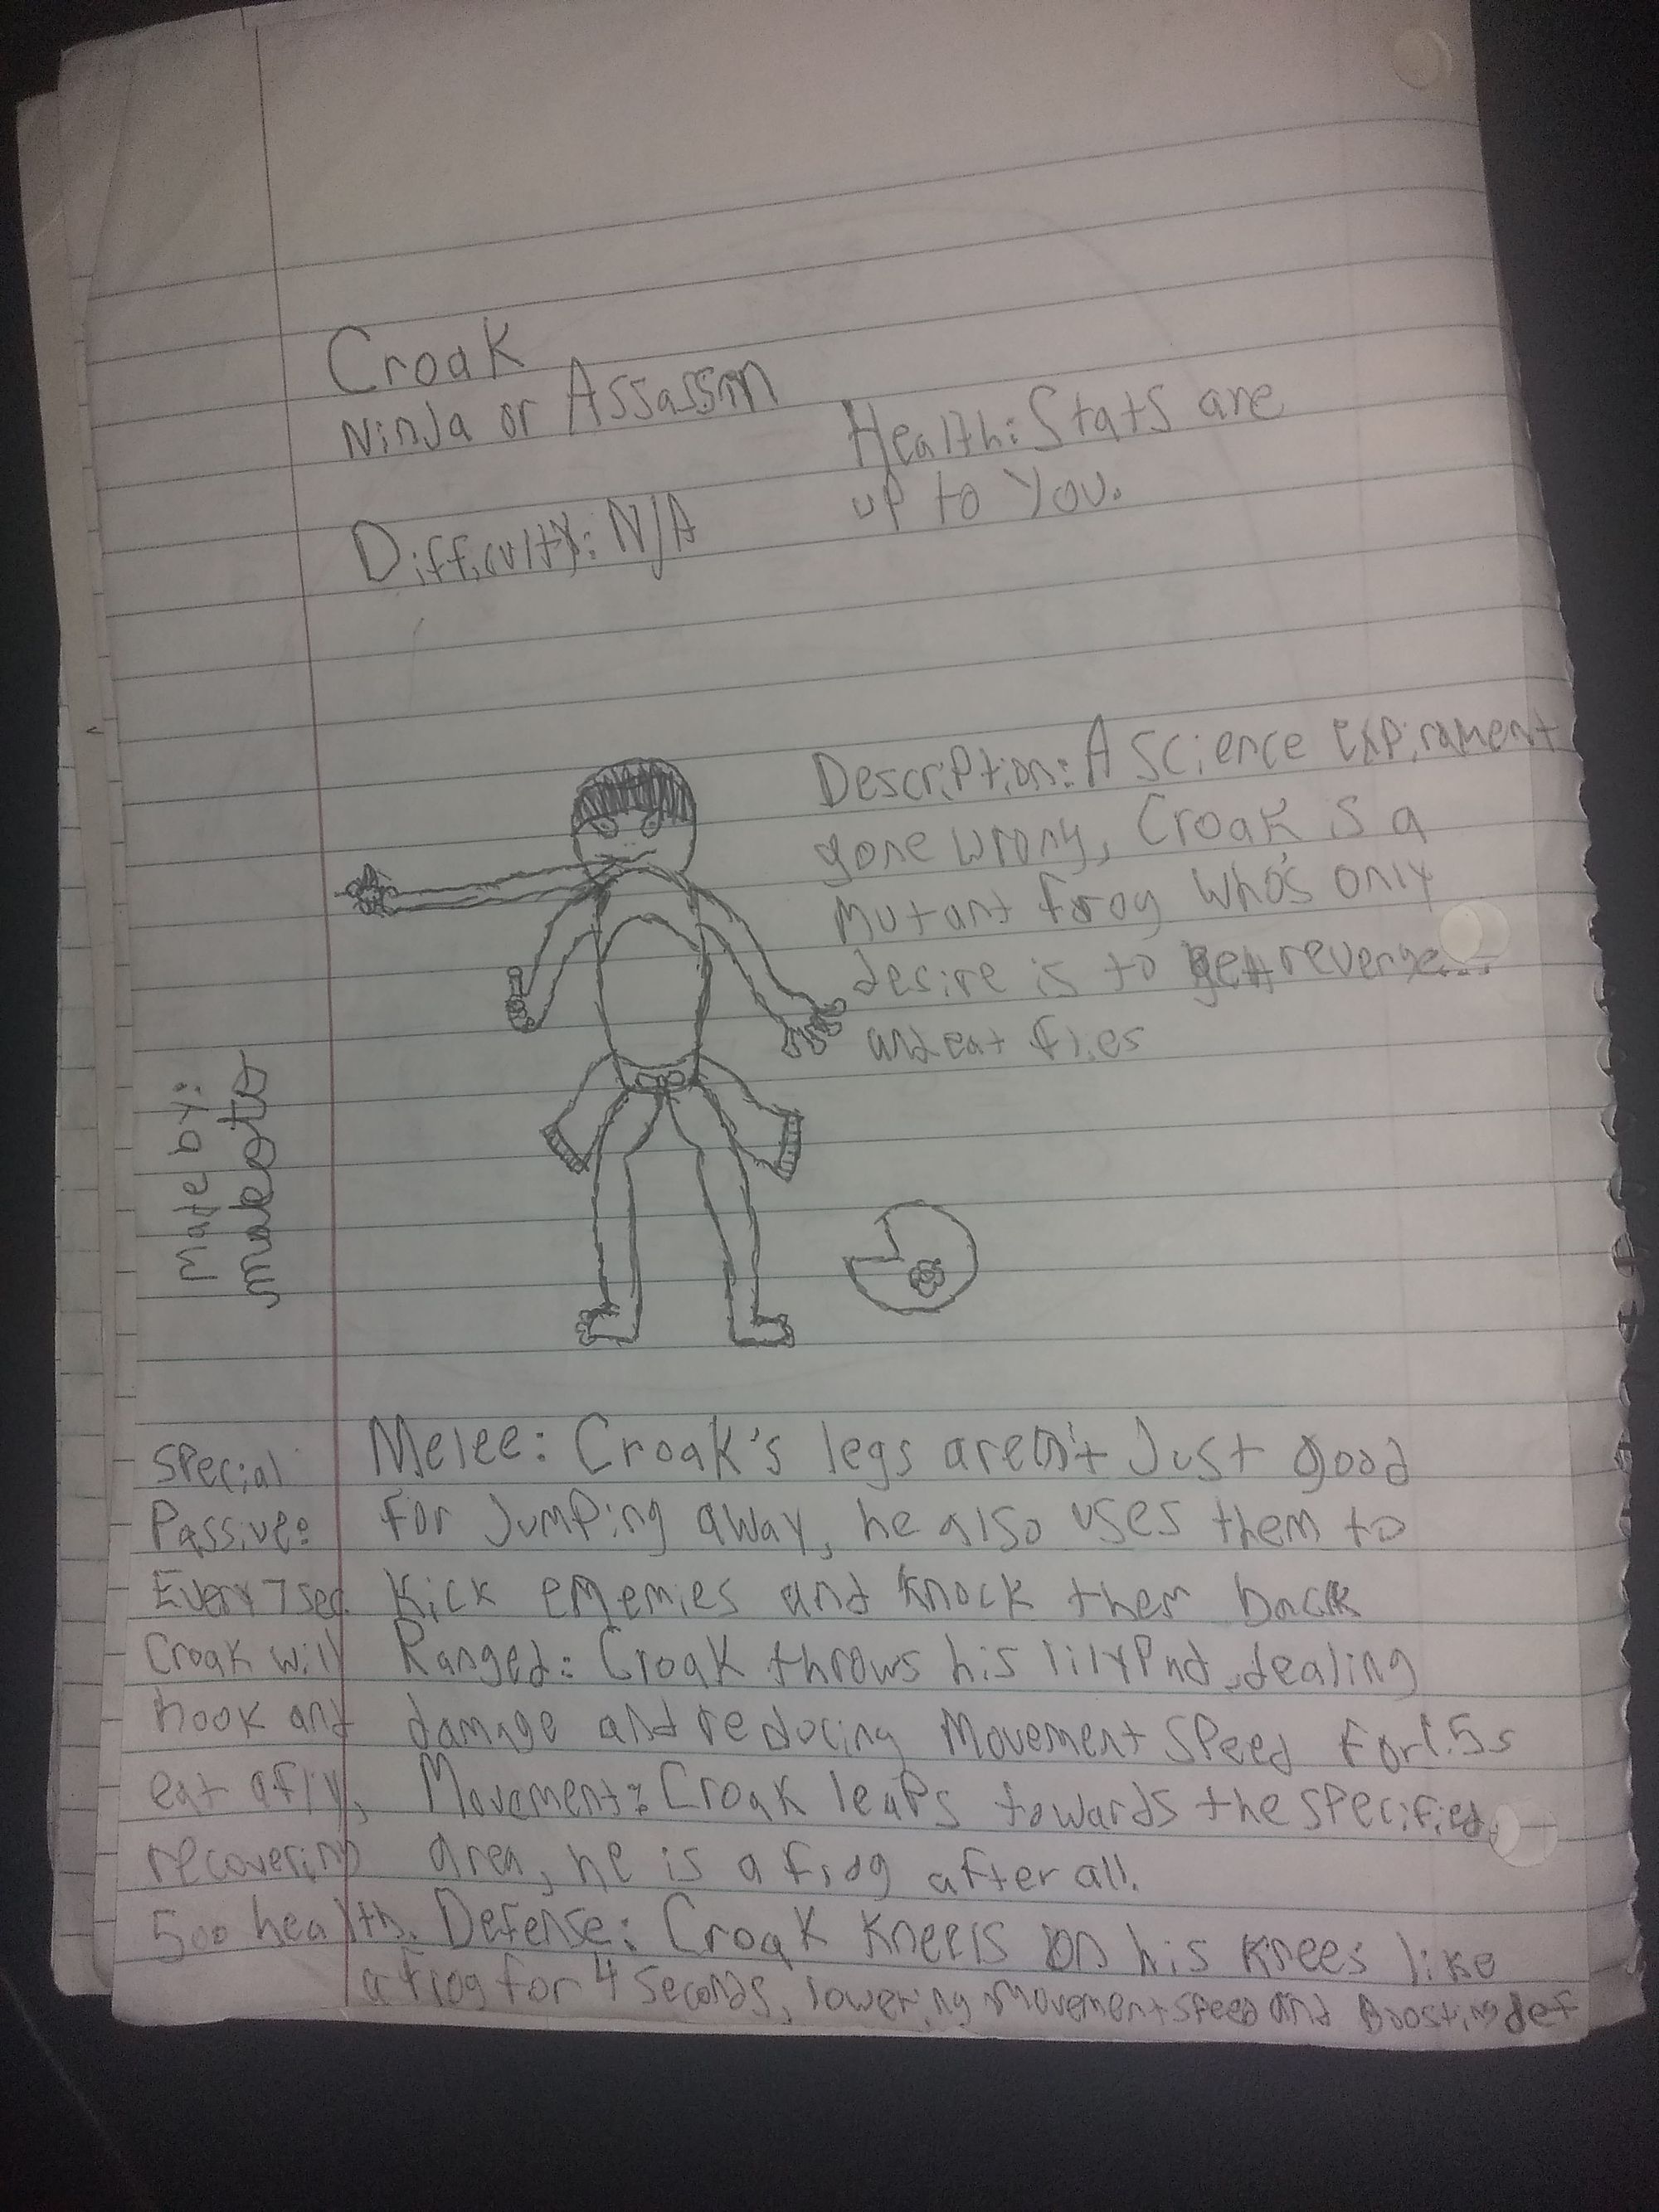 Croak
Ninja or Assassin
Health: Stats are
up to You.
Difficulty: N/A
Description: A science expirament
gone wrong, Croak is a
mutant frog who's only
desire is to get revenge....
and eat flies
Made by:
makoto
Special
Passive:
Every 7 sec.
Croak will
hook and
eat a fly,
recovering
500 health.
Melee: Croak's legs aren't Just good
for Jumping away, he also uses them to
Kick enemies and knock them back
Ranged: Croak throws his lilypad, dealing
damage and reducing Movement Speed For 1.5s
Movement: Croak leaps towards the specified
area, he is a frog after all.
Defense: Croak kneels on his knees like
a frog for 4 seconds, lowering movement speed and Boosting def